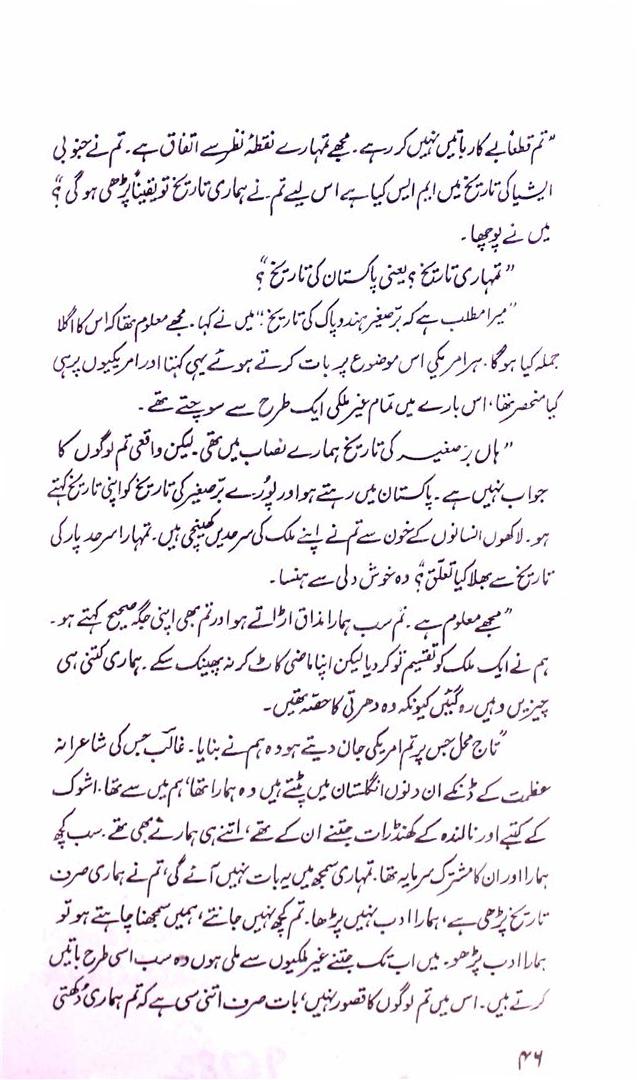 ”تم قطعاً بے کار باتیں نہیں کر رہے۔ مجھے تمہارے نقطۂ نظر سے اتفاق ہے۔ تم نے جنوبی
ایشیا کی تاریخ میں ایم ایس کیا ہے اس لیے تم نے ہماری تاریخ تو یقیناً پڑھی ہو گی؟“
میں نے پوچھا۔
”تمہاری تاریخ؟ یعنی پاکستان کی تاریخ؟“
”میرا مطلب ہے کہ برّصغیر ہند و پاک کی تاریخ“ میں نے کہا۔ مجھے معلوم تھا کہ اس کا اگلا
جملہ کیا ہو گا۔ ہر امریکی اس موضوع پر بات کرتے ہوئے یہی کہتا اور امریکیوں پر ہی
کیا منحصر تھا، اس بارے میں تمام غیر ملکی ایک طرح سے سوچتے تھے۔
”ہاں برّصغیر کی تاریخ ہمارے نصاب میں تھی۔ لیکن واقعی تم لوگوں کا
جواب نہیں ہے۔ پاکستان میں رہتے ہو اور پورے برّصغیر کی تاریخ کو اپنی تاریخ کہتے
ہو۔ لاکھوں انسانوں کے خون سے تم نے اپنے ملک کی سرحدیں کھینچی ہیں۔ تمہارا سرحد پار کی
تاریخ سے بھلا کیا تعلّق؟“ وہ خوش دلی سے ہنسا۔
”مجھے معلوم ہے۔ تم سب ہمارا مذاق اڑاتے ہو اور تم بھی اپنی جگہ صحیح کہتے ہو۔
ہم نے ایک ملک کو تقسیم تو کر دیا لیکن اپنا ماضی کاٹ کر نہ پھینک سکے۔ ہماری کتنی ہی
چیزیں وہیں رہ گئیں کیونکہ وہ دھرتی کا حصّہ تھیں۔
”تاج محل جس پر تم امریکی جان دیتے ہو وہ ہم نے بنایا۔ غالبؔ جس کی شاعرانہ
عظمت کے ڈنکے ان دنوں انگلستان میں پٹتے ہیں وہ ہمارا تھا، ہم میں سے تھا۔ اشوک
کے کتبے اور نالندہ کے کھنڈرات جتنے ان کے تھے، اتنے ہی ہمارے بھی تھے۔ سب کچھ
ہمارا اور ان کا مشترک سرمایہ تھا۔ تمہاری سمجھ میں یہ بات نہیں آئے گی، تم نے ہماری صرف
تاریخ پڑھی ہے، ہمارا ادب نہیں پڑھا۔ تم کچھ نہیں جانتے، ہمیں سمجھنا چاہتے ہو تو
ہمارا ادب پڑھو۔ میں اب تک جتنے غیر ملکیوں سے ملی ہوں وہ سب اسی طرح باتیں
کرتے ہیں۔ اس میں تم لوگوں کا قصور نہیں، بات صرف اتنی سی ہے کہ تم ہماری دُکھتی
۴۶